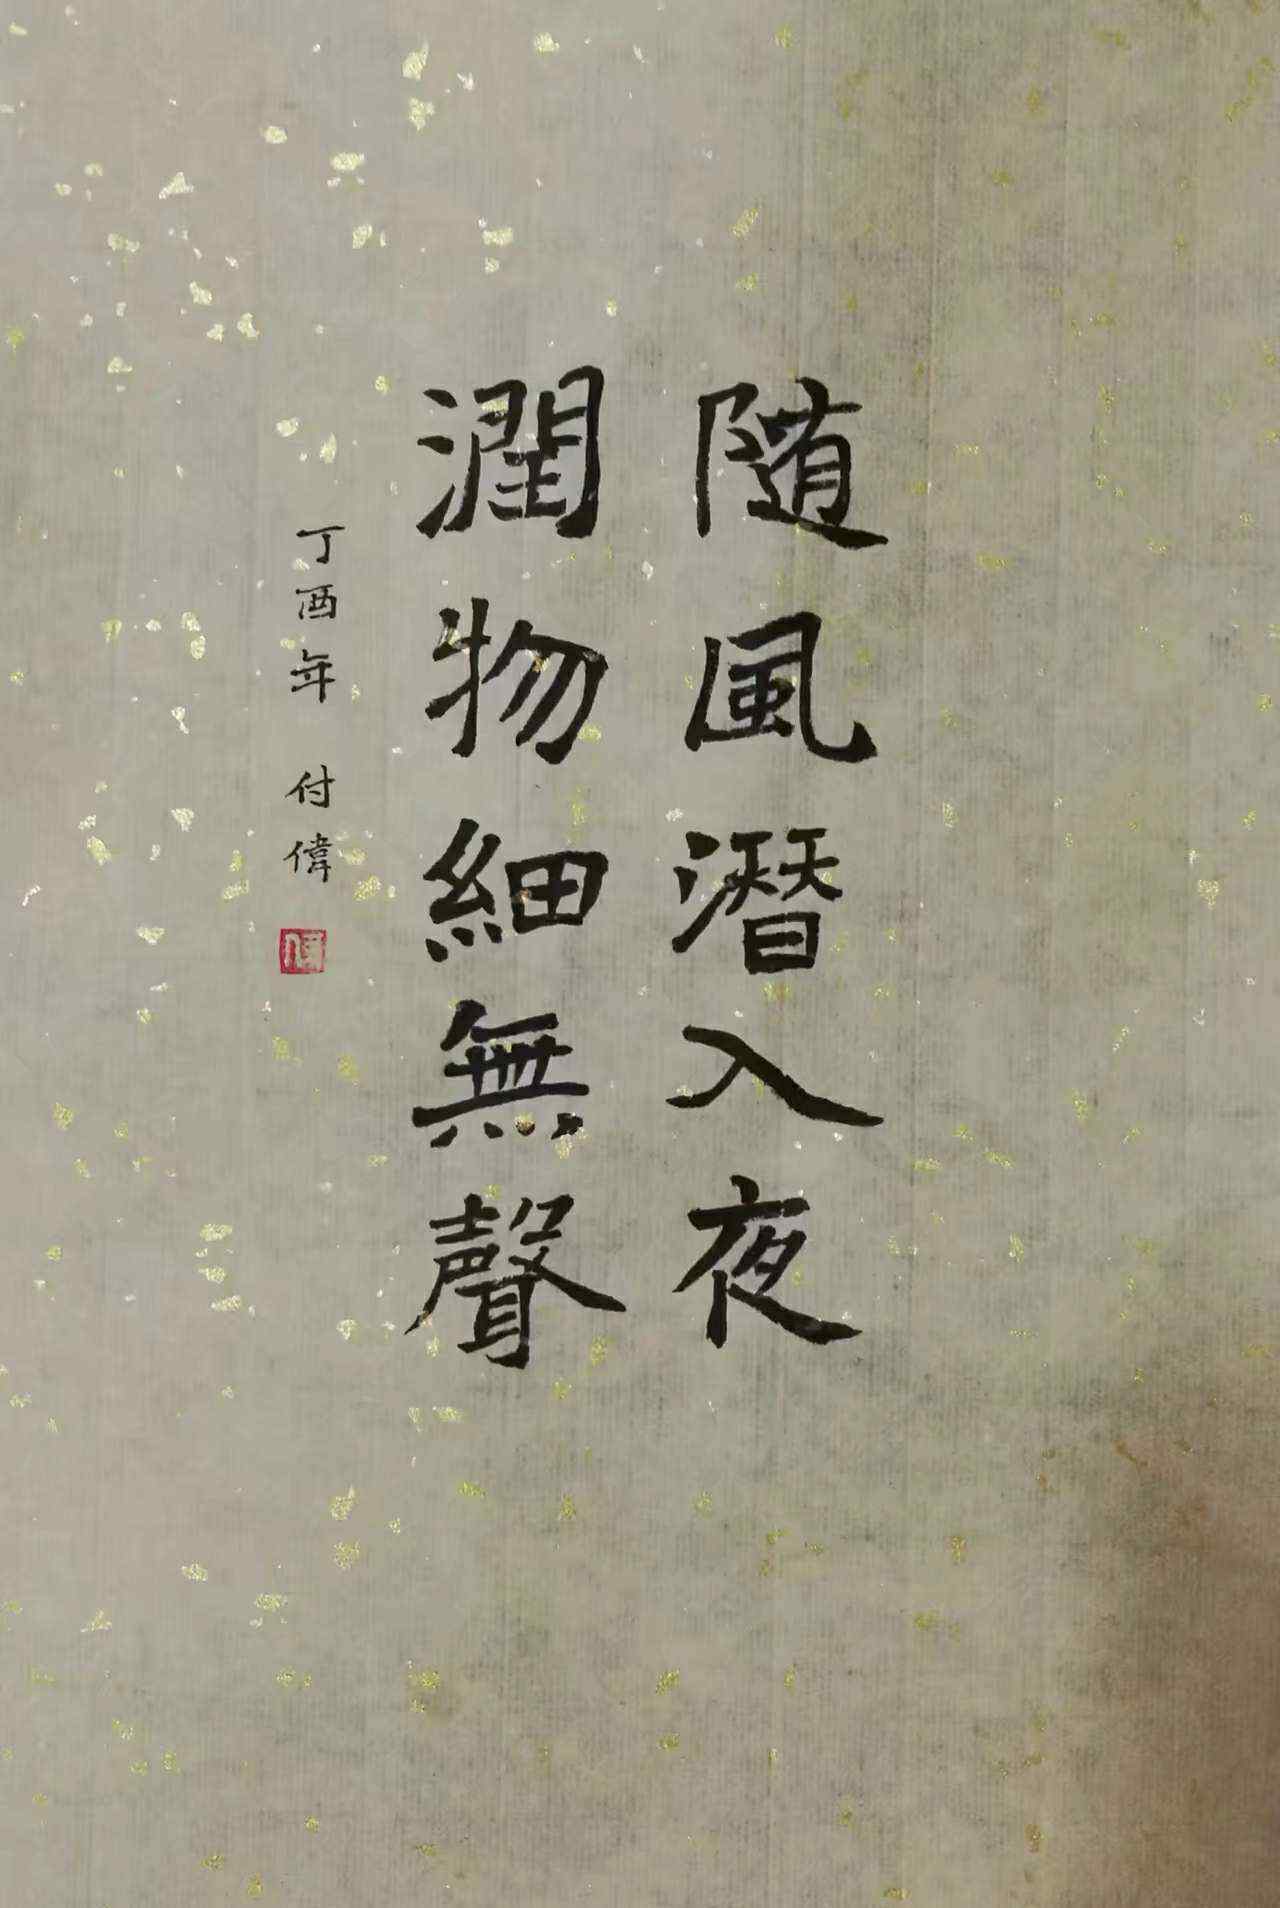 随風潛入夜
潤物細無聲
丁酉年 付偉